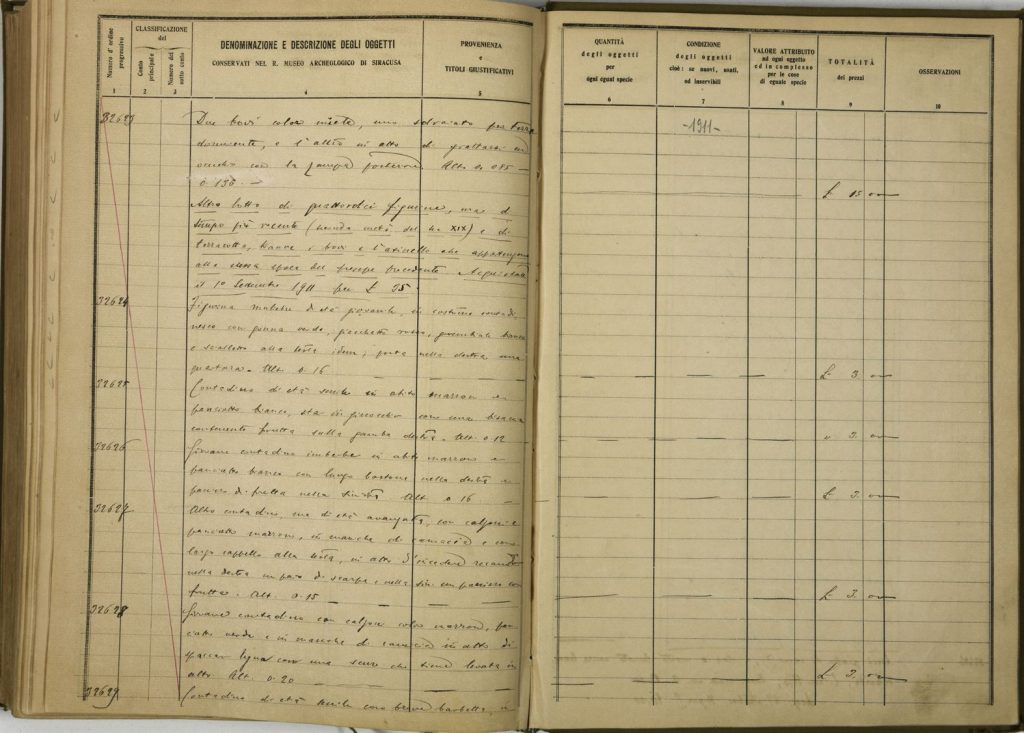 Numero d'ordine progressivo
CLASSIFICAZIONE
del
Conto principale
Numero del sotto conto
DENOMINAZIONE E DESCRIZIONE DEGLI OGGETTI
CONSERVATI NEL R. MUSEO ARCHEOLOGICO DI SIRACUSA
PROVENIENZA
e
TITOLI GIUSTIFICATIVI
1 2 3 4 5
32623 Due bovi color miele, uno sdraiato per terra
dormiente, e l'altro in atto di grattarsi un
orecchio con la zampa posteriore. Alt. 0.085 —
0.130. —
Altro lotto di quattordici figurine, ma di
tempo più recente (seconda metà del sec. XIX) e di
terracotta, tranne i bovi e l'asinello che appartengono
alla stessa epoca del presepe precedente. Acquistato
il 1º Settembre 1911 per £ 35.
32624 Figurina muliebre di età giovanile, in costume contadi
nesco con gonna verde, rosso, bianco
e scialletto alla testa idem; porta nella destra una
Alt. 0.16
32625 Contadino di età senile in abito marrone e
panciotto bianco, sta in ginocchio con una bisaccia
contenente frutta sulla gamba destra. Alt. 0.12
32626 Giovane contadino imberbe in abito marrone e
panciotto bianco con lungo bastone nella destra e
paniere di frutta nella sinistra. Alt. 0.16
32627 Altro contadino, ma di età avanzata, con calzoni e
panciotto marrone, in maniche di camicia e con
largo cappello alla testa, in atto d'incedere recando
nella destra un paio di scarpe e nella sin. un paniere con
frutta. Alt. 0.15
32628 Giovane contadino con calzoni color marrone, pan
ciotto verde e in maniche di camicia in atto di
spaccar legna con una scure che tiene levata in
alto Alt. 0.20
32629 Contadino di età senile con breve barbetta, in
QUANTITÀ
degli oggetti
per
ogni eguai specie
CONDIZIONE
degli oggetti
cioè: se nuovi, usati,
od inservibili
VALORE ATTRIBUITO
ad ogni oggetto
ed in complesso
per le cose
di eguale specie
TOTALITÀ
dei prezzi
OSSERVAZIONI
6 7 8 9 10
-1911-
£ 3. —
" 3. —
£ 3. —
£ 3. —
£ 3. —